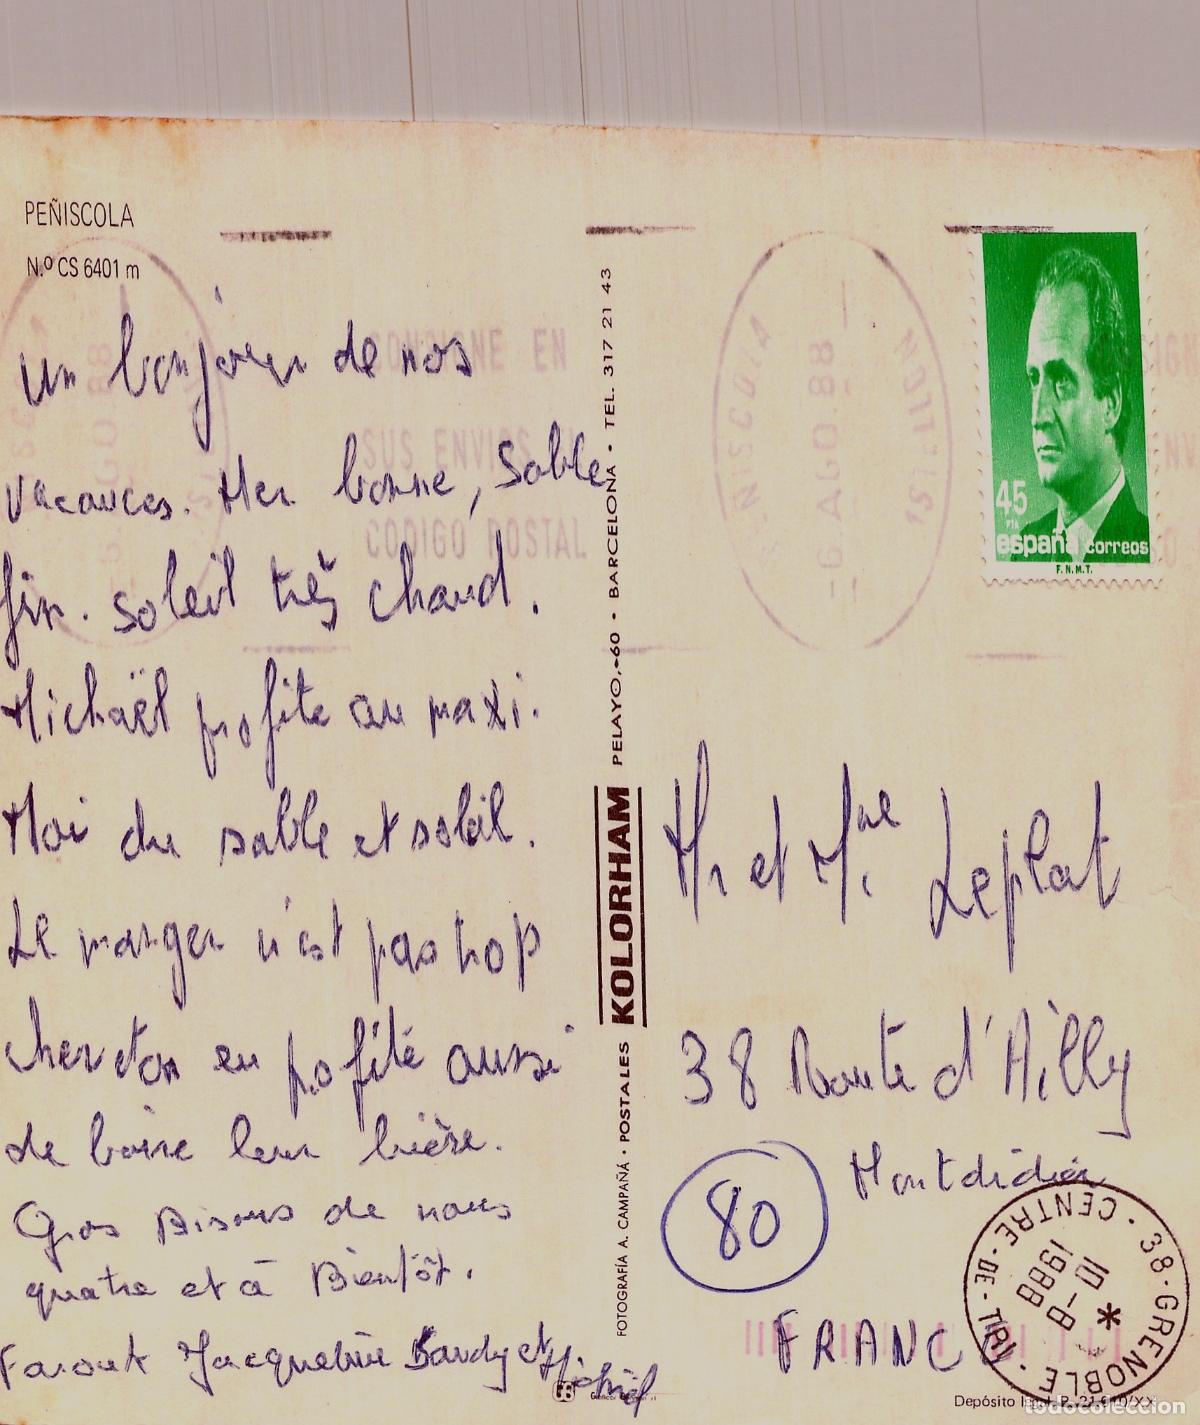 PEÑISCOLA
N.º CS 6401 m
un bonjour de nos
vacances. Mer bonne, Sable
fin. soleil très chaud.
Michaël profite au maxi.
Moi du sable et soleil.
Le manger n'est pas trop
cher et on en profite aussi
de boire leur bière.
Gros Bisous de nous
quatre et à Bientôt.
Jacqueline Sandy et
FOTOGRAFÍA A. CAMPAÑÁ · POSTALES KOLORHAM PELAYO, 60 · BARCELONA · TEL. 317 21 43
CONSIGNE EN
SUS ENVIOS
CODIGO POSTAL
PEÑISCOLA
-6 AGO. 88
CASTELLON
45
PTA
españa correos
F.N.M.T.
Mr et Mme Leplat
38 Route d'Ailly
80 Montdidier
FRANCE
38 · GRENOBLE · CENTRE · DE · TRI
10-8
1988
*
Depósito legal B.
todocoleccion